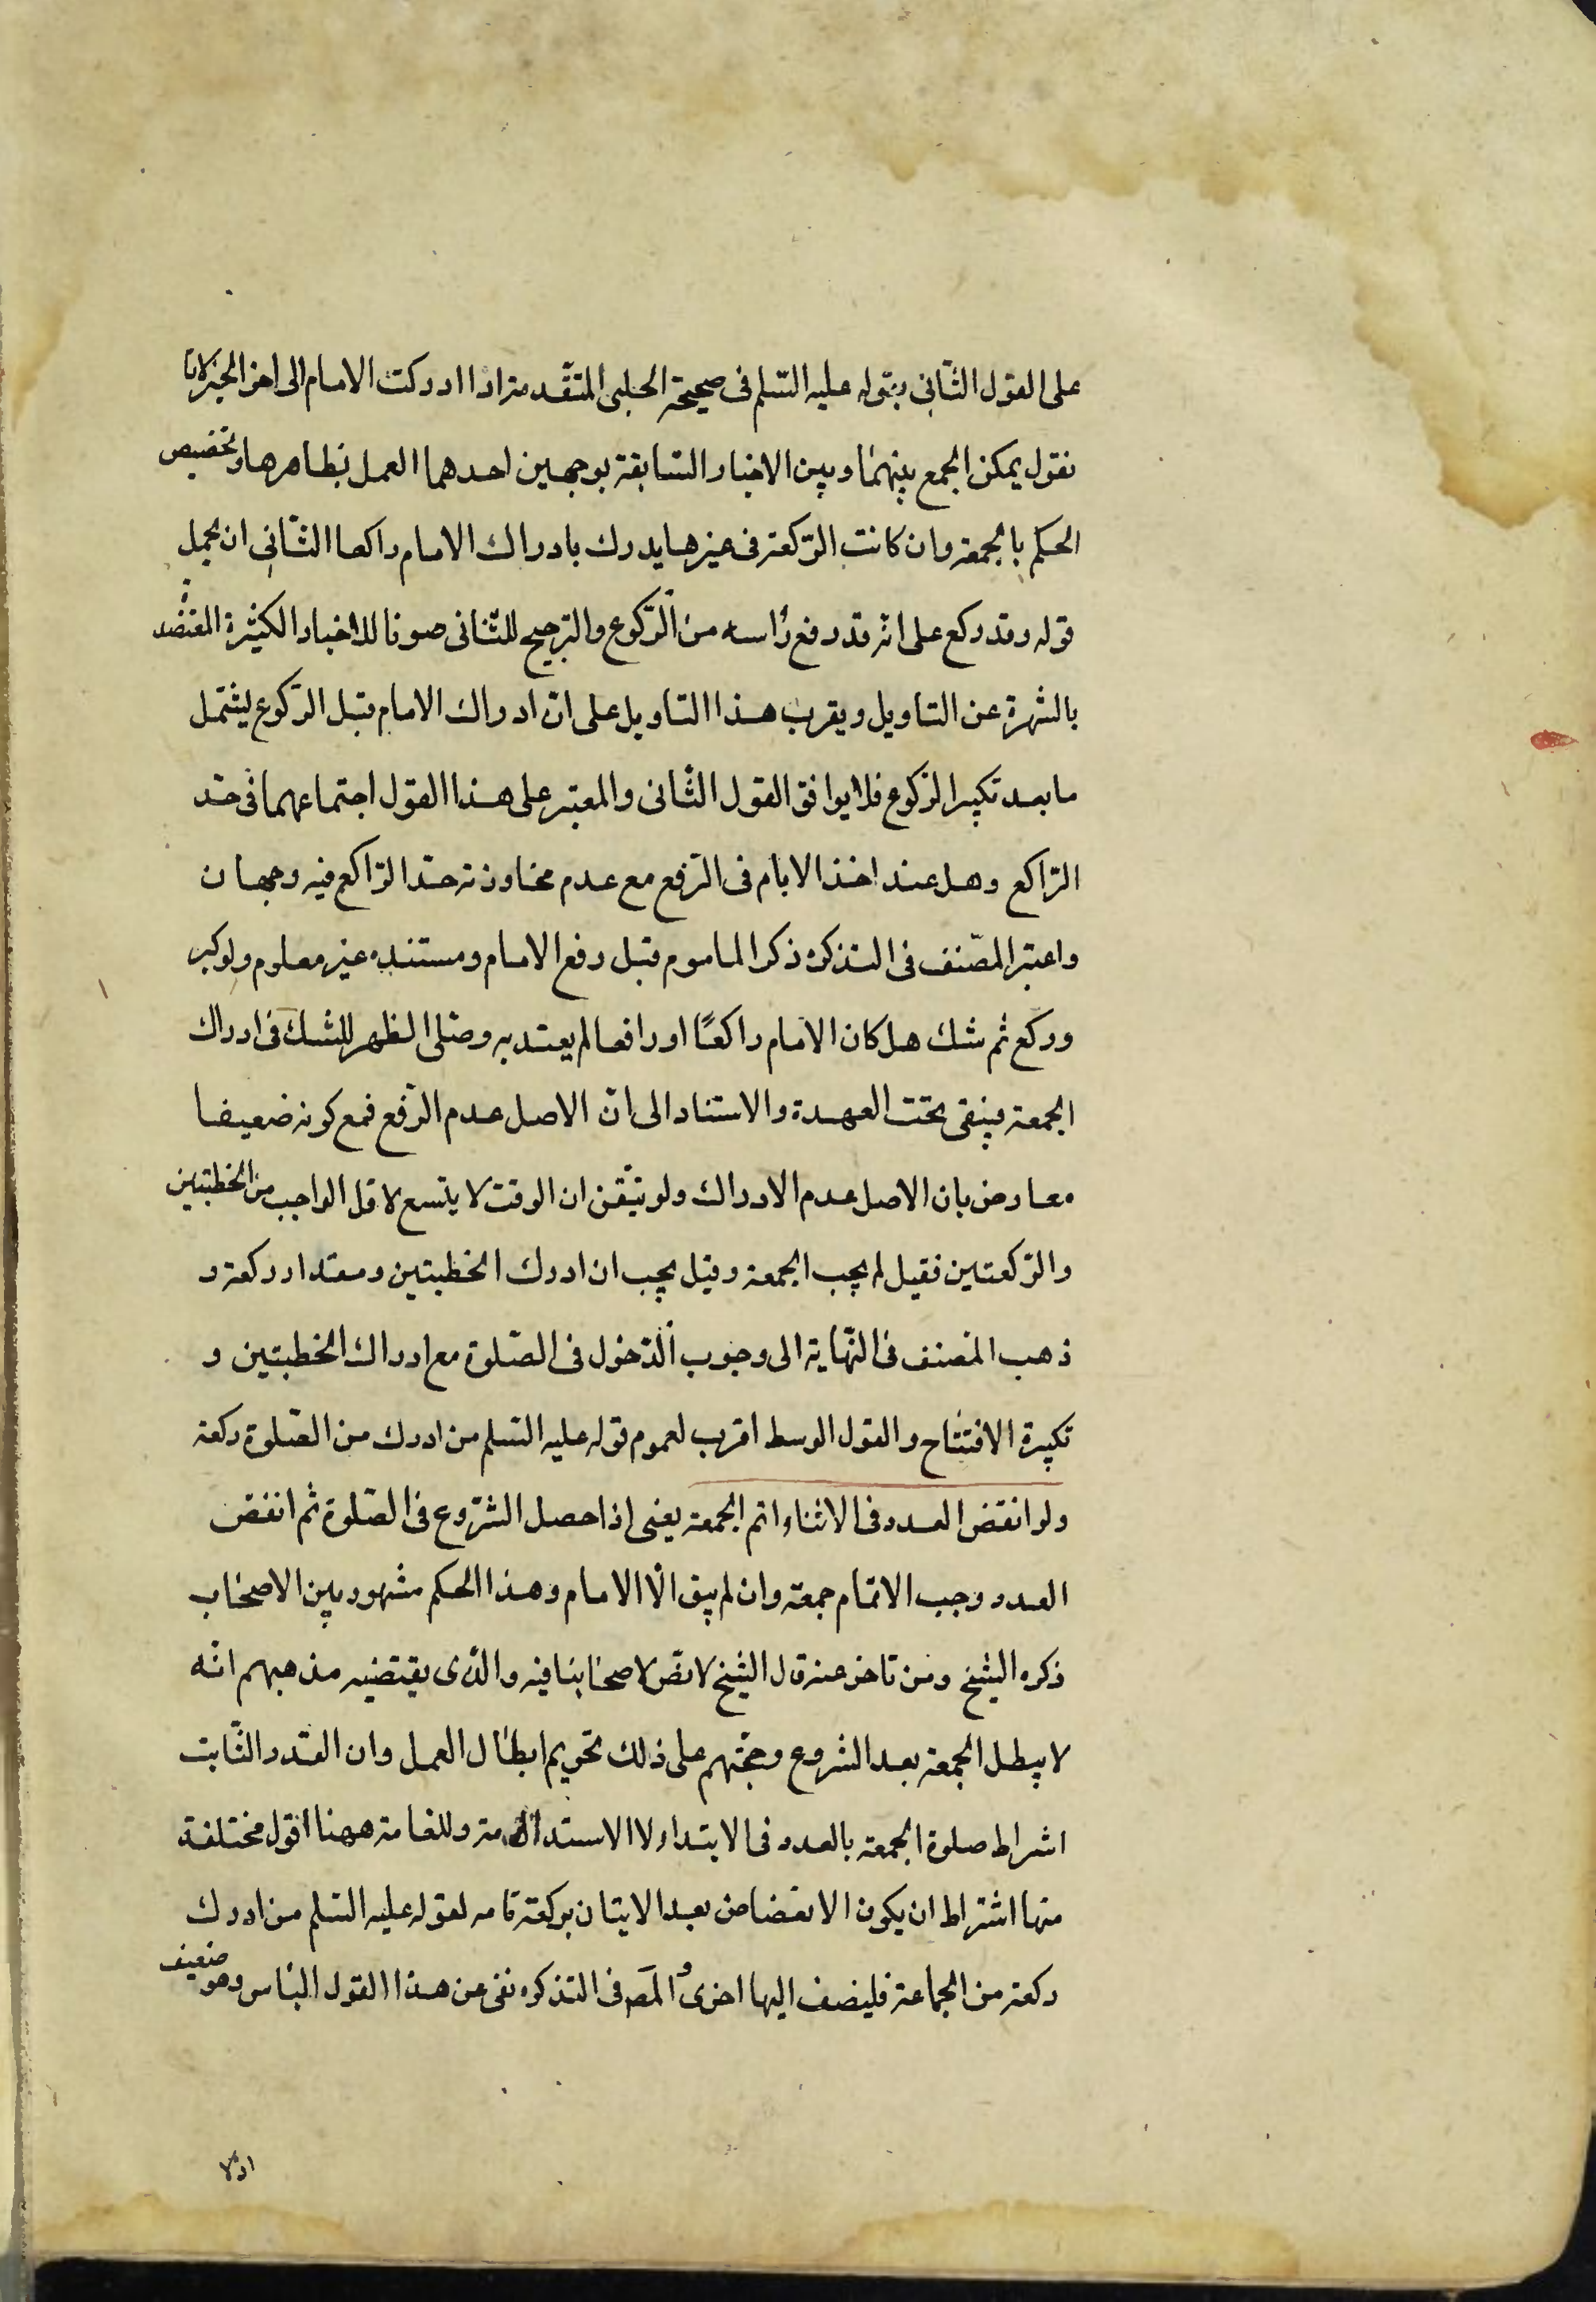 على القول الثانى بقوله عليه السلم فى صحيحة الحلبى المتقدمة اذا ادركت الامام الى اخر الخبر لانا
نقول يمكن الجمع بينهما وبين الاخبار السابقة بوجهين احدهما العمل بظاهرها وتخصيص
الحكم بالجمعة وان كانت الركعة فى غيرها يدرك بادراك الامام راكعا الثانى ان يحمل
قوله وقد ركع على انه قد رفع رأسه من الركوع والترجيح للثانى صونا للاخبار الكثيرة المعتضد
بالشهرة عن التاويل ويقرب هذا التاويل على ان ادراك الامام قبل الركوع ليشتمل
ما بعد تكبير الركوع فلا يوافق القول الثانى والمعتبر على هذا القول اجتماعهما فى حد
الراكع وهل عند اخذ الامام فى الرفع مع عدم مجاوزته حد الراكع فيه وجهان
واعتبر المصنف فى التذكره ذكر الماموم قبل رفع الامام ومستنده غير معلوم ولو كبر
وركع ثم شك هل كان الامام راكعًا او رافعا لم يعتد به وصلى الظهر للشك فى ادراك
الجمعة فيبقى تحت العهدة والاستناد الى ان الاصل عدم الرفع فمع كونه ضعيفا
معارض بان الاصل عدم الادراك ولو تيقن ان الوقت لا يتسع لاقل الواجب من الخطبتين
والركعتين فقيل لم يجب الجمعة وقيل يجب ان ادرك الخطبتين ومقدار ركعة و
ذهب المصنف فى النهاية الى وجوب الدخول فى الصلوة مع ادراك الخطبتين و
تكبيرة الافتتاح والقول الوسط اقرب لعموم قوله عليه السلم من ادرك من الصلوة ركعة
ولو انفض العدد فى الاثناء اتم الجمعة يعنى اذا حصل الشروع فى الصلوة ثم انفض
العدد وجب الاتمام جمعة وان لم يبق الا الامام وهذا الحكم مشهور بين الاصحاب
ذكره الشيخ ومن تاخر عنه قال الشيخ لا نص لاصحابنا فيه والذى يقتضيه مذهبهم انه
لا يبطل الجمعة بعد الشروع وحجتهم على ذلك تحريم ابطال العمل وان القدر الثابت
اشراط صلوة الجمعة بالعدد فى الابتداء لا الاستدامة وللعامة ههنا اقول مختلفة
منها اشتراط ان يكون الانفضاض بعد الاتيان بركعة تامه لقوله عليه السلم من ادرك
ركعة من الجماعة فليضف اليها اخرى والمصـ فى التذكره نفى عن هذا القول الباس وهو ضعيف